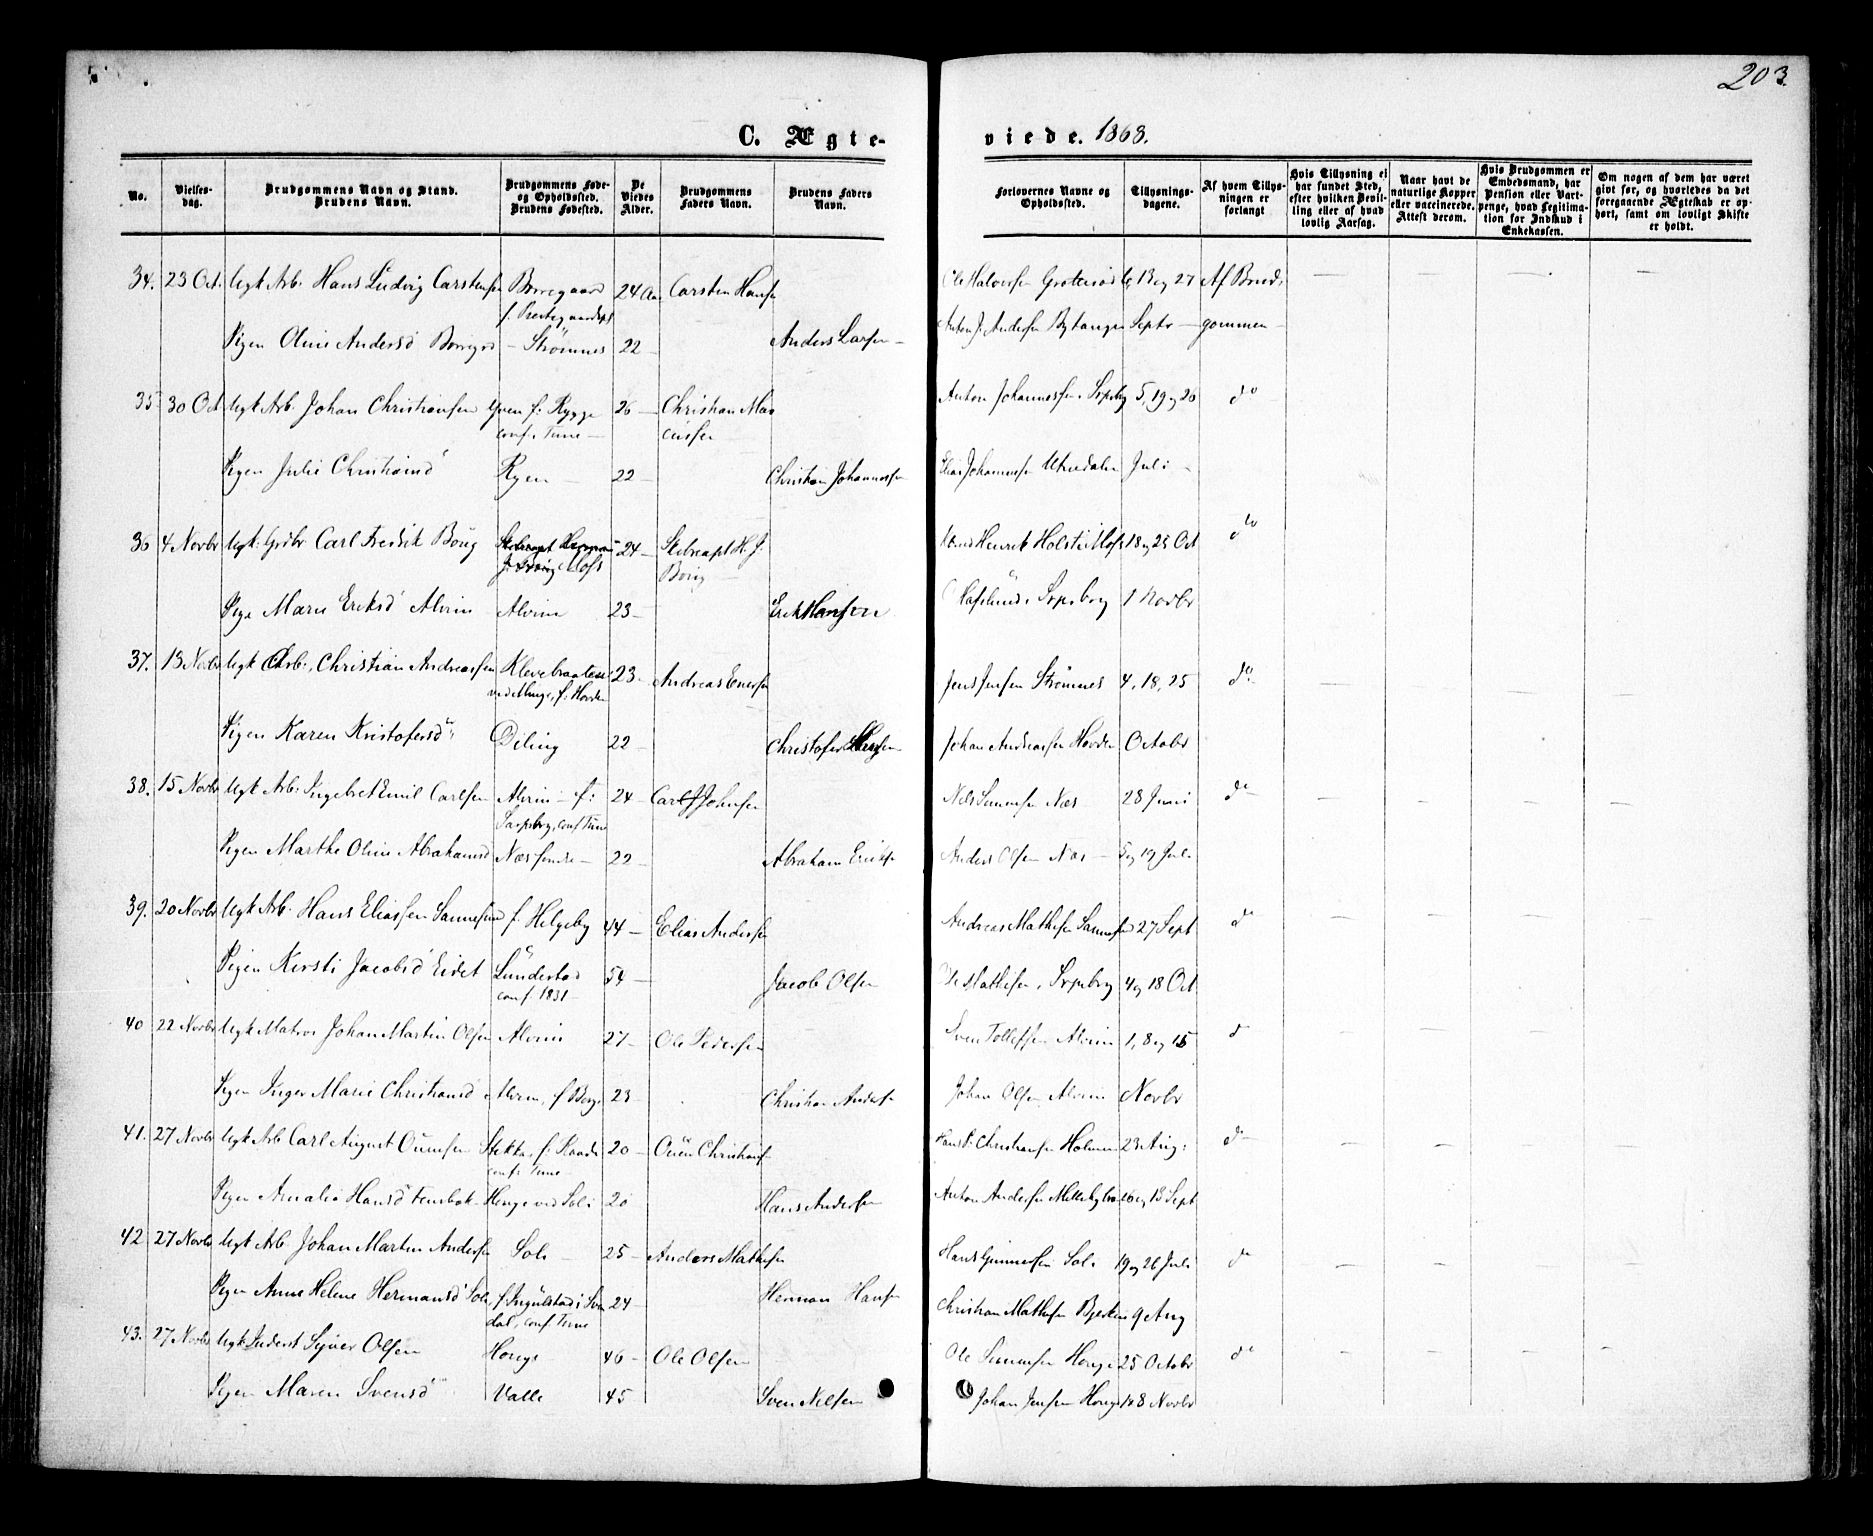 203.
C. Ægte-
viede. 1868.
No.
Vielses-
dag.
Brudgommens Navn og Stand.
Brudens Navn.
Brudgommens Føde-
og Opholdssted.
Brudens Fødested.
De
Viedes
Alder.
Brudgommens
Faders Navn.
Brudens Faders
Navn.
Forlovernes Navne og
Opholdssted.
Tillysnings-
dagene.
Af hvem Tillys-
ningen er
forlangt
Hvis Tillysning ei
har fundet Sted,
efter hvilken Bevil-
ling eller af hvad
lovlig Aarsag.
Naar havt de
naturlige Kopper
eller vaccinerede.
Attest derom.
Hvis Brudgommen er
Embedsmand, har
Pension eller Vart-
penge, hvad Legitima-
tion for Indskud i
Enkekassen.
Om nogen af dem har været
givt før, og hvorledes da det
foregaaende Ægteskab er op-
hørt, samt om lovligt Skifte
er holdt.
34. 23 Oct. Ugk Arb. Hans Ludvig Carstensen Borregaard 24 Aar Carsten Hansen Ole Halvorsen 13 og 27 Af Brud-
Pigen Oline Andersd Strømnes 22 Anders Larsen Anton J. Andersen Septr gommen
35 30 Oct Ugk Arb. Johan Christiansen f. Rygge 26 Christian Mar Anton Johannesen, Srpsbg 5, 19 og 26 do
conf. Tune cussen
Pigen Julie Christiansd Ryen 22 Christian Johannessen Elias Johannessen Utnedalen Juli
36 4 Novbr Ugk. Carl Fredrik Boug 24 Skibscapt H. J. Henrik Holst 18 og 25 Oct do
Boug
Pige Maren Eriksd Alvim Alvim 23 Erik Hansen Hafslund, Srpsborg 1 Novbr
37. 13 Novbr Ugk Arb., Christian Andreassen 23 Andreas Jens Jensen Strømnes 4, 18, 25 do
Pigen Karen Kristofersd Deling 22 Christofer Hansen Johan Andreassen Hovden Octobr
38. 15 Novbr Ugk Arb. Ingebret Emil Carlsen Alvim f: 24 Carl Johnsen Nils Næs 28 Juni do
Sarpsborg, conf Tune
Pigen Marthe Oline Abrahamsd Næs søndre 22 Abraham Eriksen Anders Olsen Næs 5 og 19 Juli
39. 20 Novbr Ugk Arb. Hans Eliassen Sannesund f. Helgeby 44 Elias Andersen Andreas Mathisen Sannesund 27 Sept do
Pigen Kersti Jacobsd Eidet Lundestad 54 Jacob Olsen Mathisen, Srpsborg 4 og 18 Oct
conf. 1831
40 22 Novbr Ugk Matros Johan Martin Olsen Alvim 27 Ole Pedersen Sven Tollefsen Alvim 1, 8 og 15 do
Pigen Inger Marie Christiansd Alvim, f Borge 23 Christian Andersen Johan Olsen Alvim Novbr
41. 27 Novbr Ugk Arb Carl August Ounsen Stekka, f. Raade 20 Ouen Christians Hans P. Christiansen Holmen 23 Aug: do
conf. Tune
Pigen Amalie Hansd Hauge ved Soli 20 Hans Andersen Anton Andersen 6 og 13 Sept
42 27 Novbr Ugk Arb. Johan Martin Andersen Soli 25 Anders Mathisen Hans Gunnersen Soli 19 og 26 Juli do
Pigen Anne Helene Hermansd Soli, f. Ingulstad i 24 Herman Hansen Christian Mathisen 9 Aug
dal, conf. Tune
43. 27 Novbr Ugk Inderst Syver Olsen Hauge 46 Ole Olsen Ole Hauge 25 Octobr do
Pigen Maren Svensd Valle 45 Sven Nilsen Johan Jensen Hauge 1 og 8 Novbr